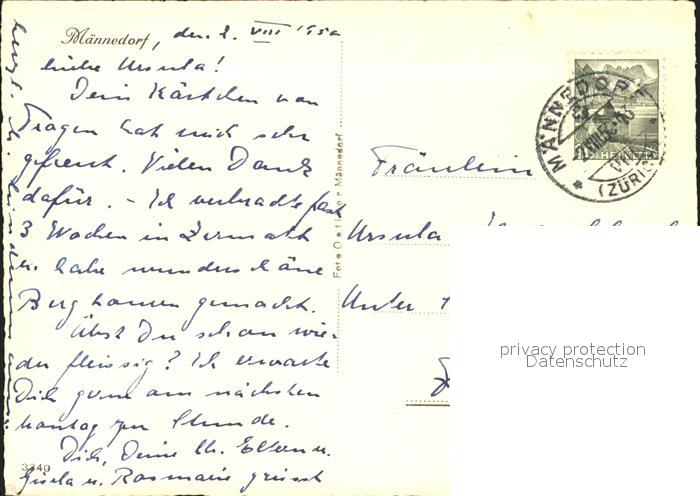 Männedorf, den 2. VIII 1950
Liebe Ursula!
Dein Kärtchen von
Trogen hat mich sehr
gefreut. Vielen Dank
dafür. - Ich verbrachte fast
3 Wochen in Zermatt
u. habe wunderschöne
Bergtouren gemacht.
Übst Du schon wie-
der fleissig? Ich erwarte
Dich gerne am nächsten
Montag zur Stunde.
Dich, Deine lb. Eltern u.
Gisela u. Rosmarie grüsst
herzl.
3340
Foto Männedorf
Fräulein
Ursula
Unter
MÄNNEDORF
(ZÜRICH)
HELVETIA
privacy protection
Datenschutz